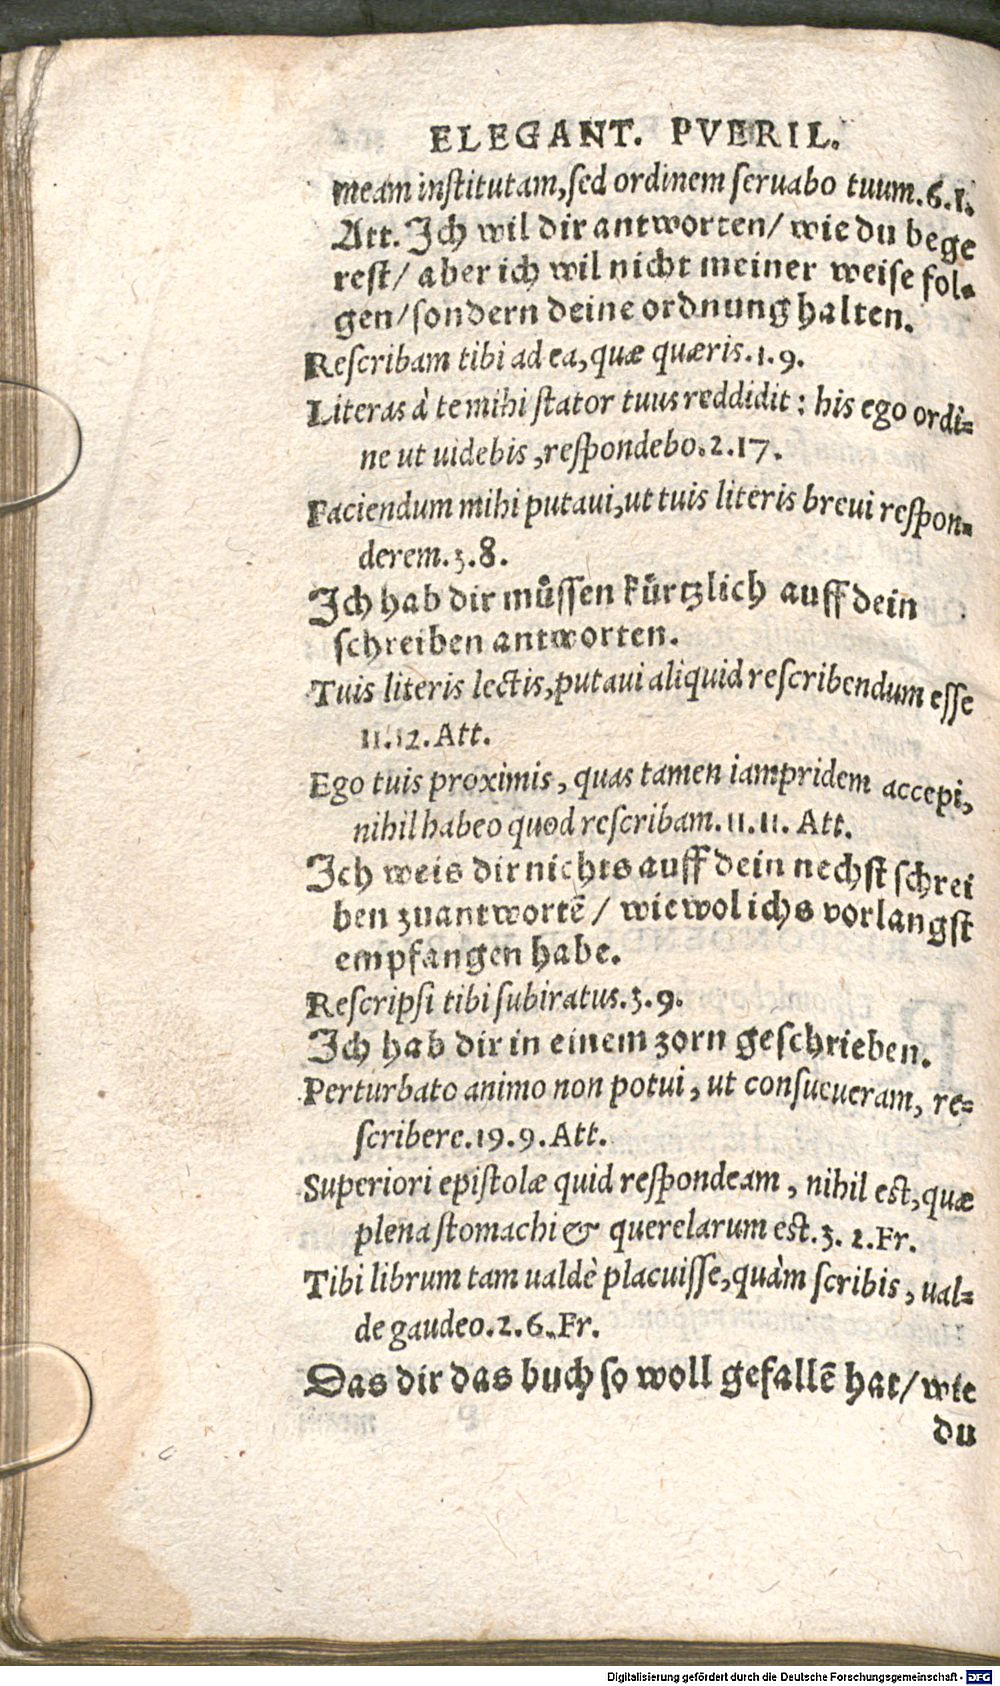 ELEGANT. PVERIL.
meam institutam, sed ordinem seruabo tuum. 6. 1.
Att. Ich wil dir antworten/ wie du bege
rest/ aber ich wil nicht meiner weise fol⸗
gen/ sondern deine ordnung halten.
Rescribam tibi ad ea, quæ quæris. 1. 9.
Literas à te mihi stator tuus reddidit: his ego ordi⸗
ne ut uidebis, respondebo. 2. 17.
Faciendum mihi putaui, ut tuis literis breui respon⸗
derem. 3. 8.
Ich hab dir müssen kürtzlich auff dein
schreiben antworten.
Tuis literis lectis, putaui aliquid rescribendum esse
11. 12. Att.
Ego tuis proximis, quas tamen iampridem accepi,
nihil habeo quod rescribam. 11. 11. Att.
Ich weis dir nichts auff dein nechst schrei
ben zuantwortē/ wiewol ichs vorlangst
empfangen habe.
Rescripsi tibi subiratus. 3. 9.
Ich hab dir in einem zorn geschrieben.
Perturbato animo non potui, ut consueueram, re⸗
scribere. 19. 9. Att.
Superiori epistolæ quid respondeam, nihil est, quæ
plena stomachi & querelarum est. 3. 2. Fr.
Tibi librum tam ualdè placuisse, quàm scribis, ual⸗
de gaudeo. 2. 6. Fr.
Das dir das buch so woll gefallē hat/ wie
du
Digitalisierung gefördert durch die Deutsche Forschungsgemeinschaft - DFG